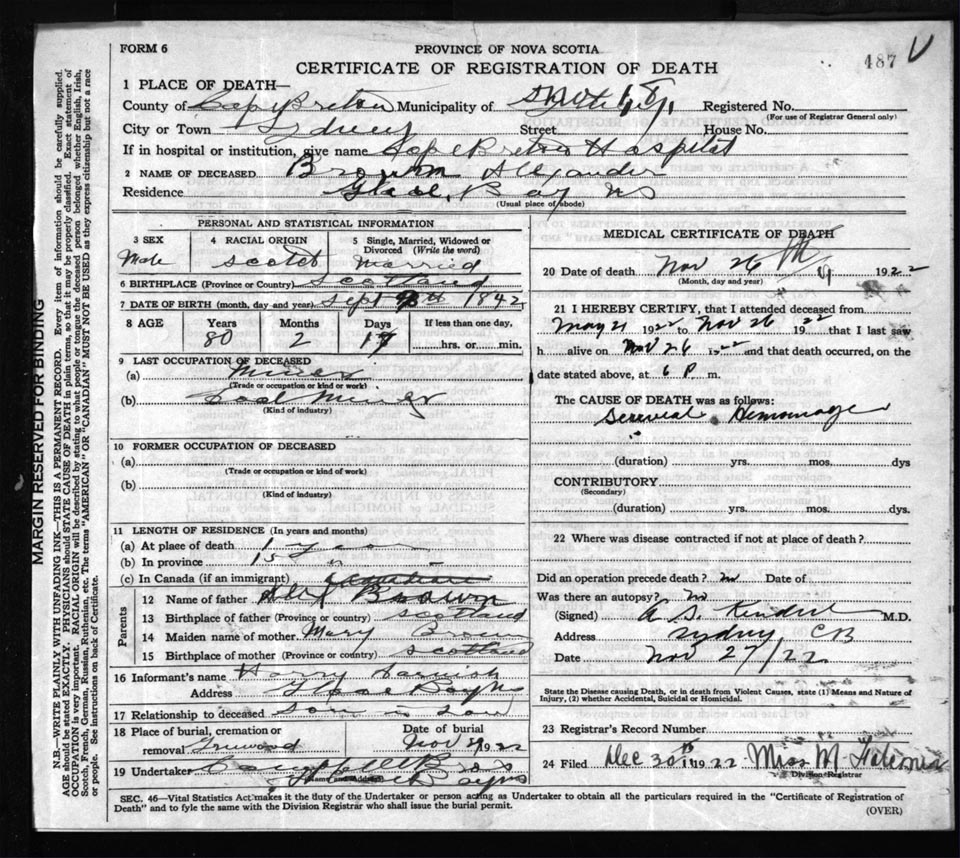 FORM 6
PROVINCE OF NOVA SCOTIA
487 V
CERTIFICATE OF REGISTRATION OF DEATH
1 PLACE OF DEATH—
County of Cape Breton Municipality of Registered No.
(For use of Registrar General only)
City or Town Sydney Street House No.
If in hospital or institution, give name Cape Breton Hospital
2 NAME OF DECEASED Brown Alexander
Residence Glace Bay NS
(Usual place of abode)
PERSONAL AND STATISTICAL INFORMATION
3 SEX 4 RACIAL ORIGIN 5 Single, Married, Widowed or Divorced (Write the word)
Male Scotch Married
6 BIRTHPLACE (Province or Country) Scotland
7 DATE OF BIRTH (month, day and year) Sept 1842
8 AGE Years Months Days If less than one day,
80 2 17 hrs. or min.
9 LAST OCCUPATION OF DECEASED
(a) Miner
(Trade or occupation or kind or work)
(b) Coal Miner
(Kind of industry)
10 FORMER OCCUPATION OF DECEASED
(a)
(Trade or occupation or kind of work)
(b)
(Kind of industry)
11 LENGTH OF RESIDENCE (In years and months)
(a) At place of death 1 year
(b) In province 15 "
(c) In Canada (if an immigrant)
Parents
12 Name of father Alex Brown
13 Birthplace of father (Province or country) Scotland
14 Maiden name of mother Mary Brown
15 Birthplace of mother (Province or country) Scotland
16 Informant's name Harry
Address Glace Bay NS
17 Relationship to deceased Son in law
18 Place of burial, cremation or removal Greenwood
Date of burial Nov 1922
19 Undertaker Campbell Bros
SEC. 46—Vital Statistics Act makes it the duty of the Undertaker or person acting as Undertaker to obtain all the particulars required in the "Certificate of Registration of
Death" and to fyle the same with the Division Registrar who shall issue the burial permit.
(OVER)
MEDICAL CERTIFICATE OF DEATH
20 Date of death Nov 26 th 1922
(Month, day and year)
21 I HEREBY CERTIFY, that I attended deceased from
May 21 1922 to Nov 26 1922 that I last saw
h alive on Nov 26 1922 and that death occurred, on the
date stated above, at 6 P. m.
The CAUSE OF DEATH was as follows:
Hemorrage
(duration) yrs. mos. dys
CONTRIBUTORY
(Secondary)
(duration) yrs. mos. dys.
22 Where was disease contracted if not at place of death?
Did an operation precede death? no Date of
Was there an autopsy? no
(Signed) A. S. M.D.
Address Sydney CB
Date Nov 27/22
State the Disease causing Death, or in death from Violent Causes, state (1) Means and Nature of
Injury, (2) whether Accidental, Suicidal or Homicidal.
23 Registrar's Record Number
24 Filed Dec 30th 1922 Miss M.
Division Registrar
MARGIN RESERVED FOR BINDING
N.B.—WRITE PLAINLY WITH UNFADING INK—THIS IS A PERMANENT RECORD. Every item of information should be carefully supplied.
AGE should be stated EXACTLY. PHYSICIANS should STATE CAUSE OF DEATH in plain terms, so that it may be properly classified. Exact statement of
OCCUPATION is very important. RACIAL ORIGIN will be described by stating to what people or tongue the deceased person belonged whether English, Irish,
Scotch, French, German, Russian, Ruthenian, etc. The terms "AMERICAN" OR "CANADIAN" MUST NOT BE USED as they express citizenship but not a race
or people. See instructions on back of Certificate.